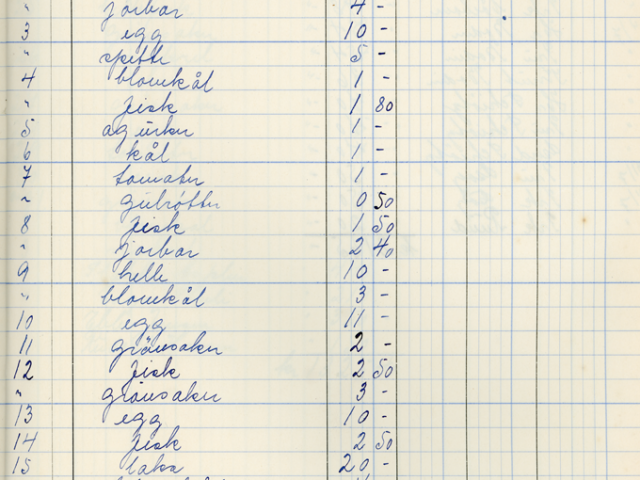 " jorbar 4 -
3 egg 10 -
" spettu 5 -
4 blomkål 1 -
" fisk 1 80
5 agurku 1 -
6 kål 1 -
7 tomatu 1 -
" gulróttu 0 50
8 fisk 1 50
" jorbar 2 40
9 helle 10 -
" blomkål 3 -
10 egg 11 -
11 grönsaku 2 -
12 fisk 2 50
" grönsaku 3 -
13 egg 10 -
14 fisk 2 50
15 laks 20 -